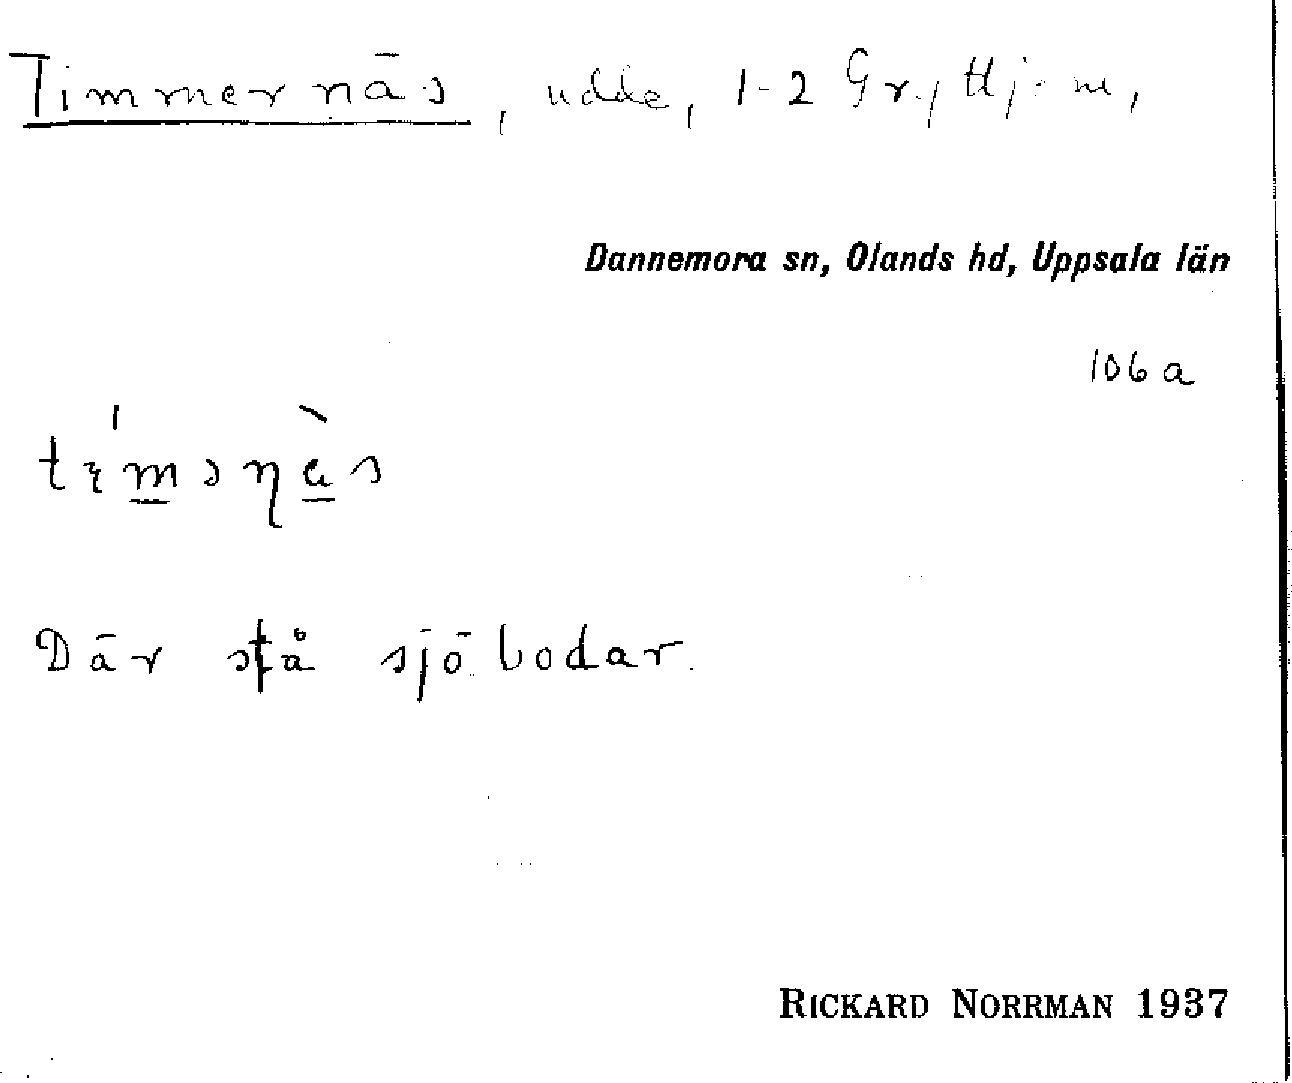 Timmernäs, udde, 1-2 Gryttjom,
Dannemora sn, Olands hd, Uppsala län
106 a
Där stå sjöbodar.
RICKARD NORRMAN 1937